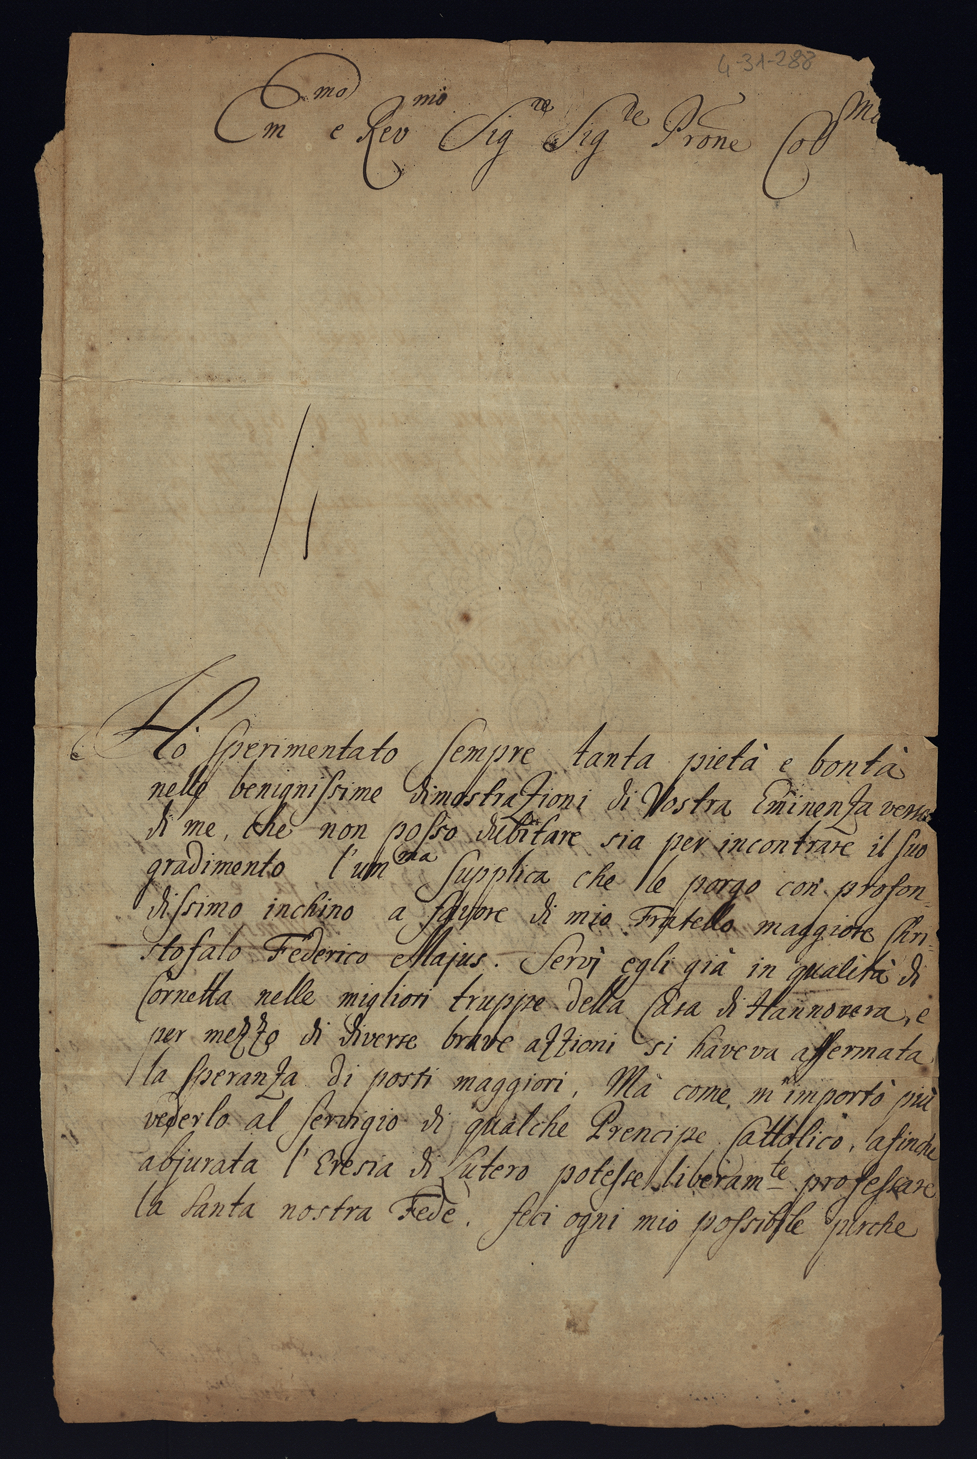 4-31-288
Em.mo e Rev.mo Sig.re Sig.re Prone Col.mo
Hò sperimentato sempre tanta pietà e bontà
nelle benignissime dimostrazioni di Vostra Eminenza verso
di me, che non posso dubitare sia per incontrare il suo
gradimento l'um.ma supplica che le porgo con profon-
dissimo inchino a favore di mio Fratello maggiore Chri-
stofalo Federico Majus. Servì egli già in qualità di
Cornetta nelle migliori truppe della Casa di Hannovera, e
per mezzo di diverse brave azzioni si haveva affermata
la speranza di posti maggiori. Mà come m'importò più
vederlo al servigio di qualche Prencipe Cattolico, afinche
abjurata l'Eresia di Lutero potesse liberam.te professare
la santa nostra Fede, feci ogni mio possibile perche